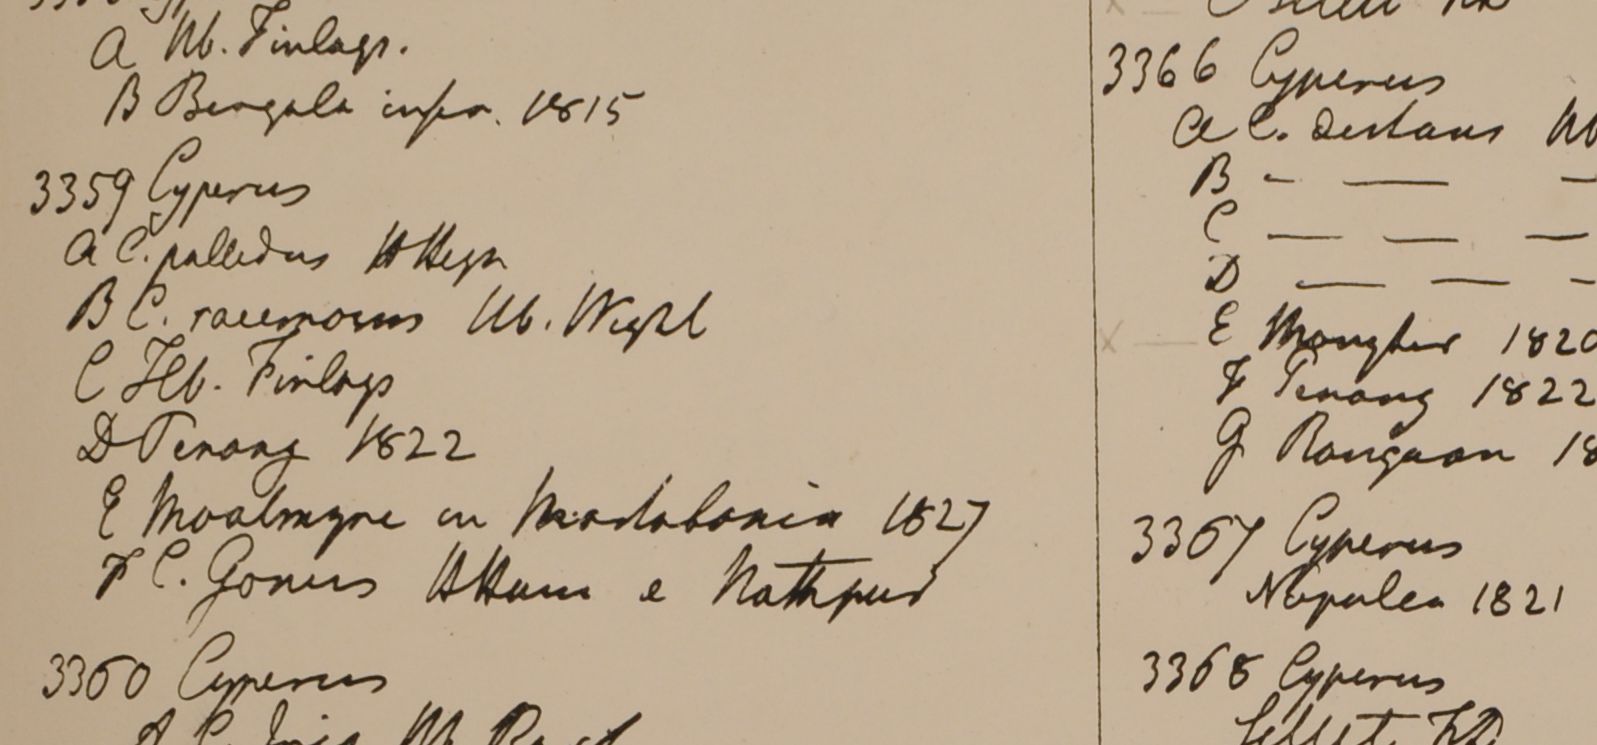 A Hb. Finlays.
B Bengala infer. 1815
3359 Cyperus
A C. pallidus HHeyn
B C. racemosus Hb. Wight
C Hb. Finlays
D Penang 1822
E Moalmyne in Martabania 1827
F C. Gonus HHam e Nathpur
3360 Cyperus
A C. Iria Hb.
3366 Cyperus
A C. distans Hb
B - — —
C — — —
D — — -
E Monghir 1820
F Penang 1822
G Rangoon 18
3367 Cyperus
Napalea 1821
3368 Cyperus
Sillet